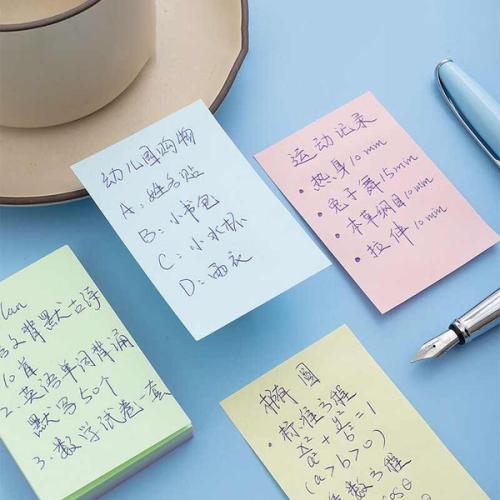 幼儿园购物
A:姓名贴
B:小书包
C:小水杯
D:雨衣
运动记录
· 热身10mm
· 兔子舞15mim
· 本草纲目10mm
· 拉伸10mm
lan
文背默古诗
10首
2.英语单词背诵
默写50个
3.数学试卷一套
椭圆
· 标准方程
x²/a²+y²/b²=1
(a>b>0)
数方程
cosθ